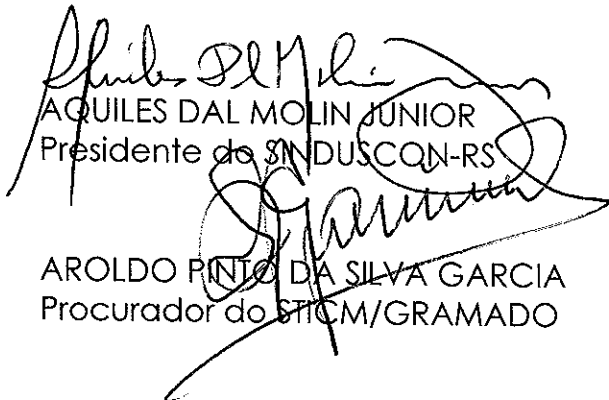 AQUILES DAL MOLIN JUNIOR
Presidente do SINDUSCON-RS
AROLDO PINTO DA SILVA GARCIA
Procurador do STICM/GRAMADO